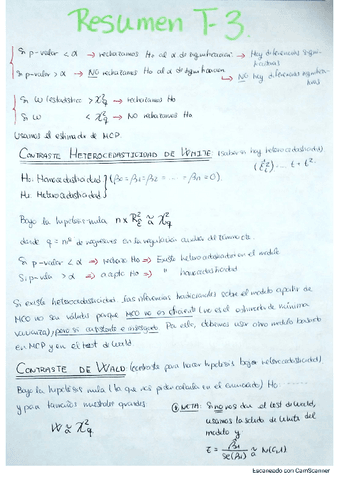 Resumen T-3.
Si p-valor < α → rechazamos Ho al α de significación → Hay diferencias significativas
Si p-valor > α → NO rechazamos Ho al α de significación → NO hay diferencias significativas
Si W (estadístico) > χ²q → rechazamos Ho
Si W < χ²q → NO rechazamos Ho
Usamos el estimado de MCP.
CONTRASTE HETEROCEDASTICIDAD DE WHITE: (saber si hay heterocedasticidad)
Ho: Homocedasticidad } (β0 = β1 = β2 = ... = βn = 0).
H1: Heterocedasticidad
Bajo la hipótesis nula n x R²ε ≈ χ²q
donde q = nº de regresores en la regresión auxiliar
Si p-valor < α → rechazo Ho → Existe heterocedasticidad en el modelo.
Si p-valor > α → acepto Ho → " homocedasticidad
Si existe heterocedasticidad, las inferencias tradicionales sobre el modelo a partir de
MCO no son válidas porque MCO no es eficiente (no es el estimador de mínima
varianza), pero si consistente e insesgado. Por ello, debemos usar otro modelo basado
en MCP y en el test de Wald.
CONTRASTE DE WALD (contraste para hacer hipótesis bajo heterocedasticidad)
Bajo la hipótesis nula (la que nos pide calcular en el enunciado) Ho: ......
y para tamaños muestrales grandes
W ≈ χ²q
NOTA: Si no nos dan el test de Wald,
usamos la salida de White del
modelo y:
se(β1) ≈ N(0,1)
Escaneado con CamScanner